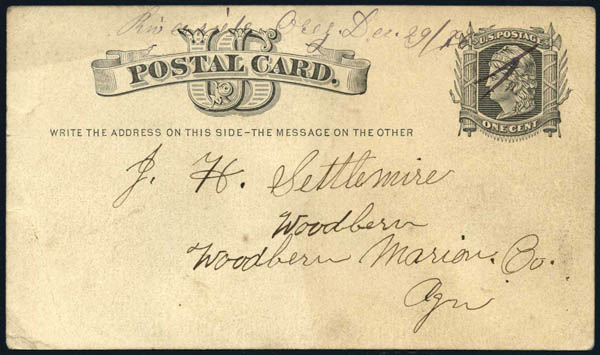 Riverside Oreg. Dec. 29/
U.S. POSTAGE
US
POSTAL CARD.
ONE CENT
WRITE THE ADDRESS ON THIS SIDE–THE MESSAGE ON THE OTHER
J. H. Settlemire
Woodbern
Woodbern Marion. Co.
Ogn